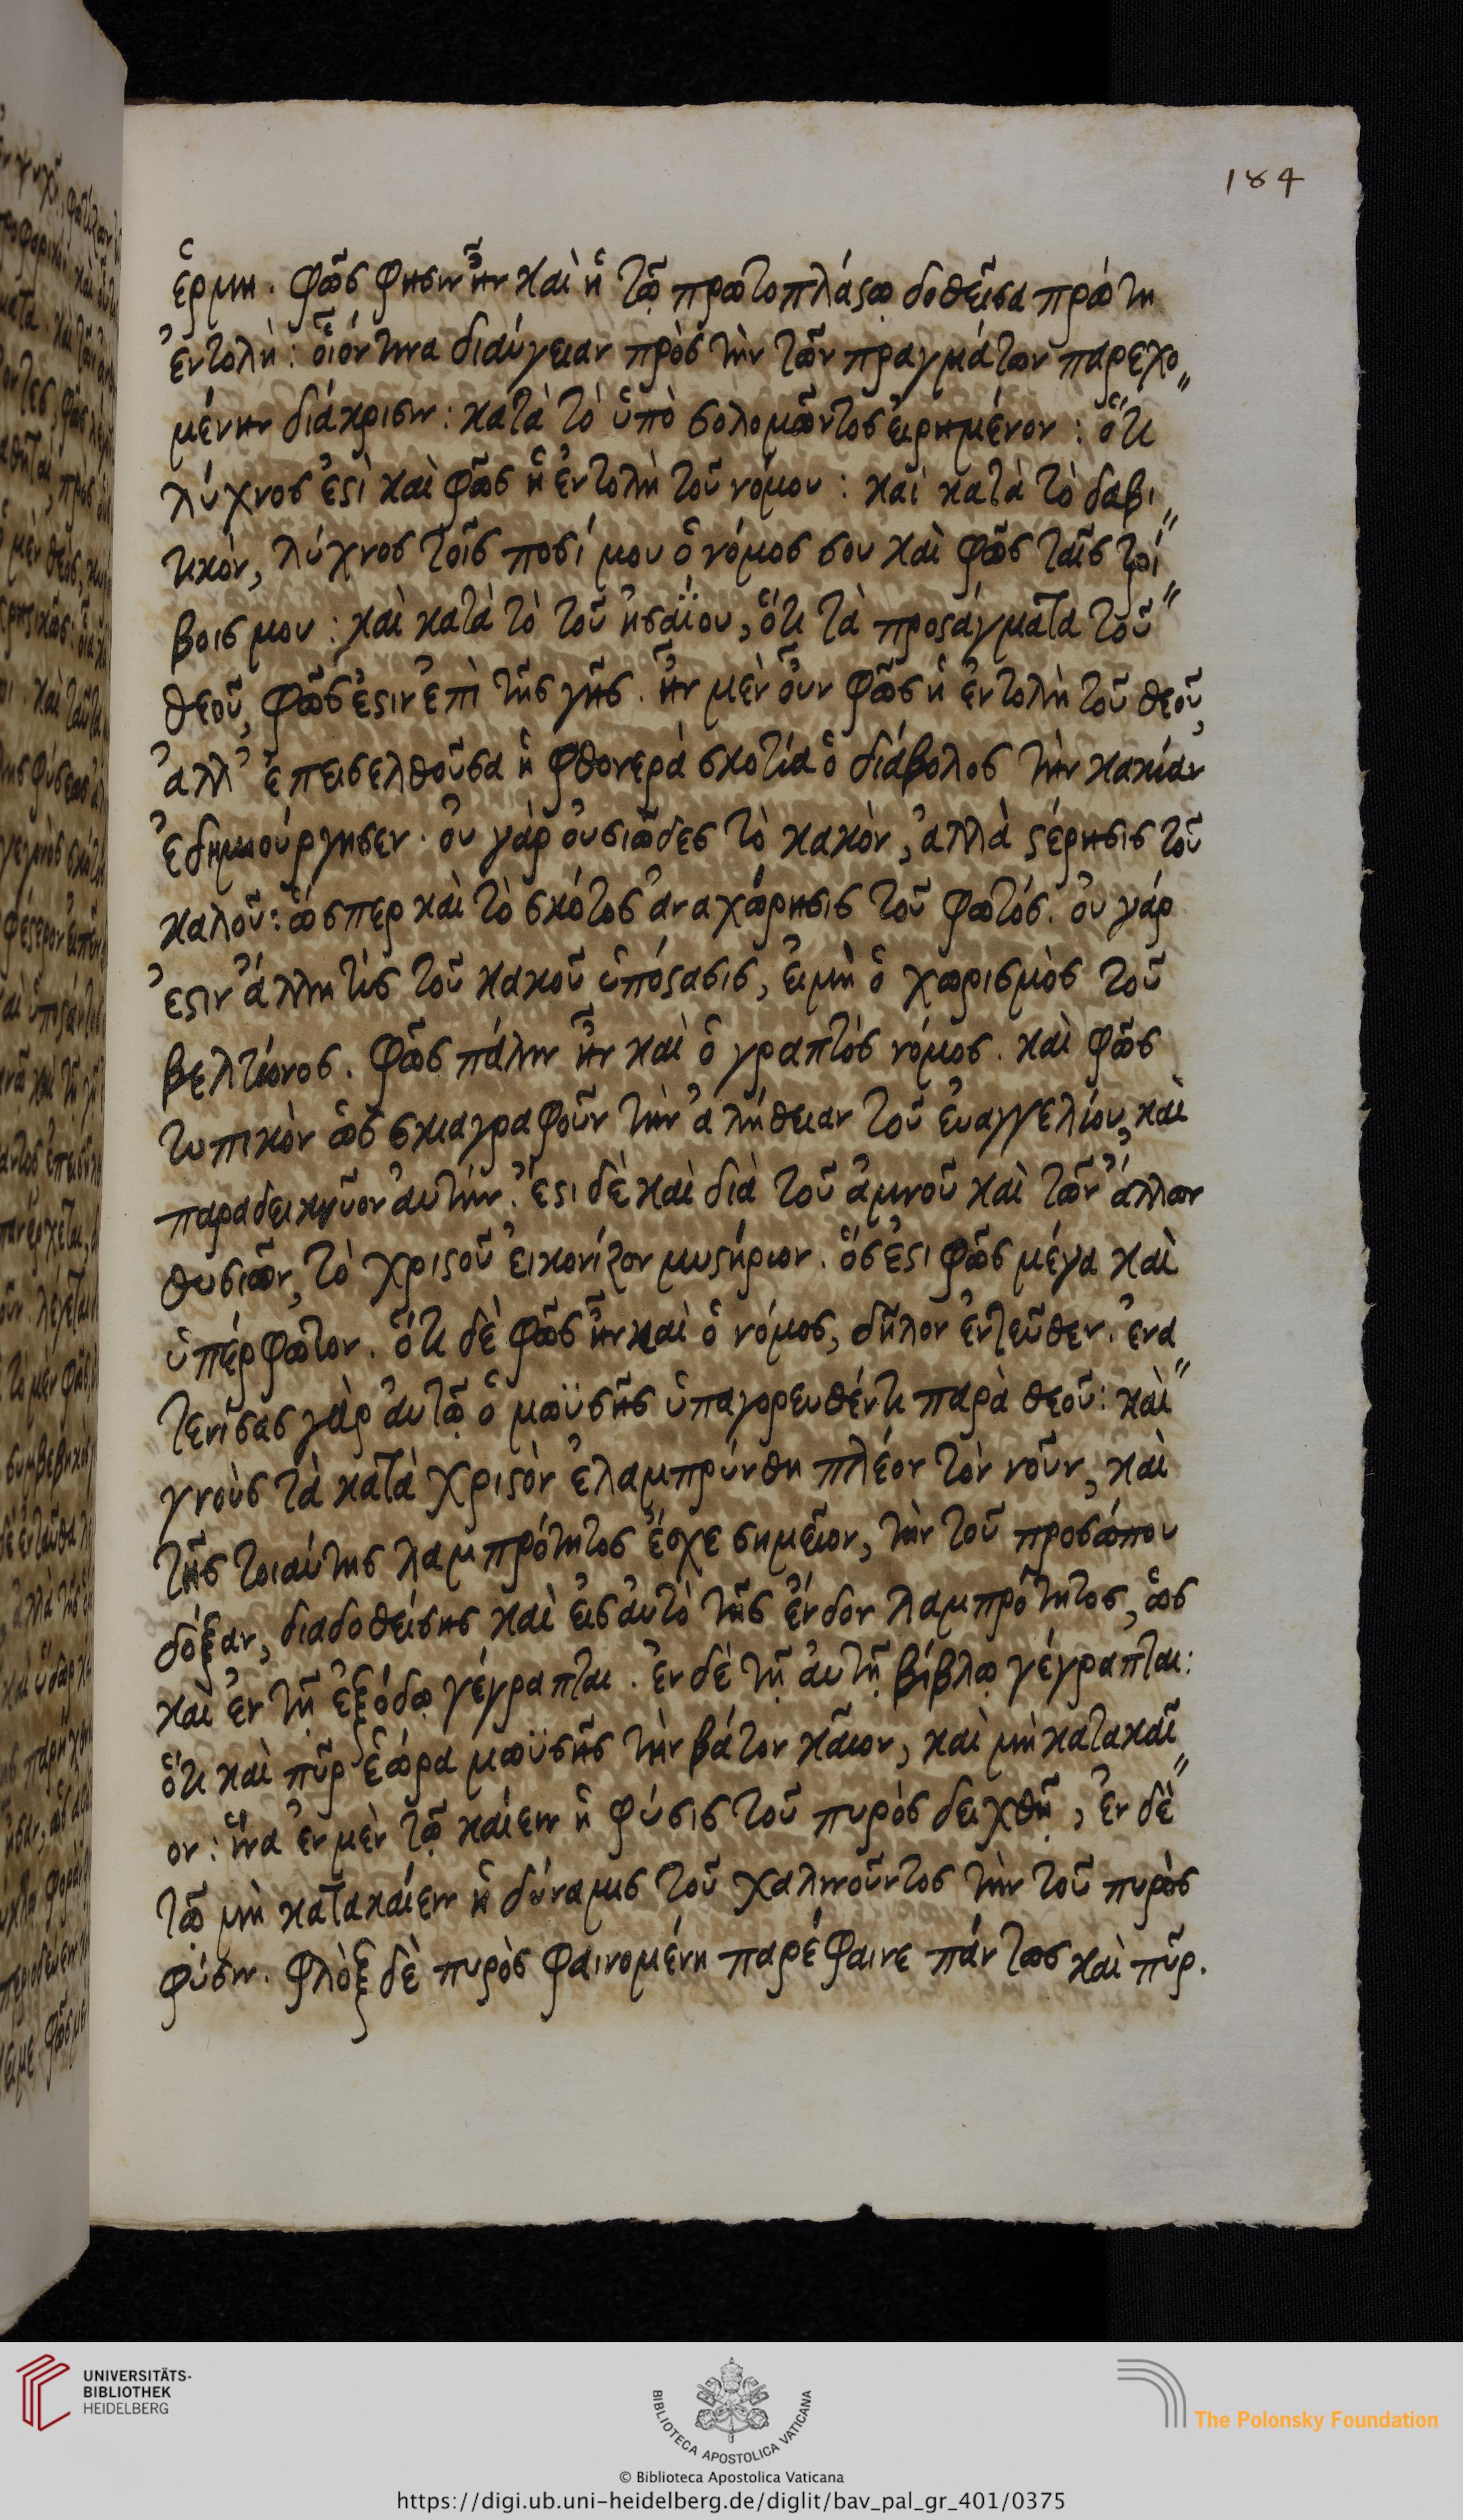 184
ἑρμη. φῶς φησιν ἦν καὶ ἡ τῷ πρωτοπλάϛῳ δοθεῖσα πρώτη
ἐντολή: οἷόν τινα διαύγειαν πρὸς τὴν τῶν πραγμάτων παρεχο„
μένην διάκρισιν: κατὰ τὸ ὑπὸ σολομῶντος εἰρημένον: ὅτι
λύχνος ἐϛὶ καὶ φῶς ἡ ἐντολὴ τοῦ νόμου: καὶ κατὰ τὸ δαβι„
τικὸν, λύχνος τοῖς ποσί μου ὁ νόμος σου καὶ φῶς ταῖς τρί„
βοις μου: καὶ κατὰ τὸ τοῦ ἠσαΐου, ὅτι τὰ προϛάγματα τοῦ
θεοῦ, φῶς ἐϛιν ἐπὶ τῆς γῆς. ἦν μὲν οὖν φῶς ἡ ἐντολὴ τοῦ θεοῦ,
ἀλλ' ἐπεισελθοῦσα ἡ φθονερὰ σκοτία ὁ διάβολος τὴν κακίαν
ἐδημιούργησεν. οὐ γὰρ οὐσιῶδες τὸ κακὸν, ἀλλὰ ϛέρησις τοῦ
καλοῦ: ὥσπερ καὶ τὸ σκότος ἀναχώρησις τοῦ φωτός. οὐ γάρ
ἐϛιν ἄλλη τὶς τοῦ κακοῦ ὑπόϛασις, εἰμὴ ὁ χωρισμὸς τοῦ
βελτίονος. φῶς πάλιν ἦν καὶ ὁ γραπτὸς νόμος. καὶ φῶς
τυπικὸν ὡς σκιαγραφοῦν τὴν ἀλήθειαν τοῦ εὐαγγελίου, καὶ
παραδεικνῦον αὐτήν. ἔϛι δὲ καὶ διὰ τοῦ ἀμνοῦ καὶ τῶν ἄλλων
θυσιῶν, τὸ χριϛοῦ εἰκονίζον μυϛήριον. ὅς ἐϛι φῶς μέγα καὶ
ὑπέρφωτον. ὅτι δὲ φῶς ἦν καὶ ὁ νόμος, δῆλον ἐντεῦθεν. ἐνα„
τενίσας γὰρ αὐτῷ ὁ μωϋσῆς ὑπαγορευθέντι παρὰ θεοῦ: καὶ
γνοὺς τὰ κατὰ χριϛὸν ἐλαμπρύνθη πλέον τὸν νοῦν, καὶ
τῆς τοιαύτης λαμπρότητος ἔσχε σημεῖον, τὴν τοῦ προσώπου
δόξαν, διαδοθείσης καὶ εἰς αὐτὸ τῆς ἔνδον λαμπρότητος, ὡς
καὶ ἐν τῇ ἐξόδῳ γέγραπται. ἐν δὲ τῇ αὐτῇ βίβλῳ γέγραπται:
ὅτι καὶ πῦρ ἑώρα μωϋσῆς τὴν βάτον καῖον, καὶ μὴ κατακαῖ„
ον: ἵνα ἐν μὲν τῷ καίειν ἡ φύσις τοῦ πυρὸς δειχθῇ, ἐν δὲ
τῷ μὴ κατακαίειν ἡ δύναμις τοῦ χαλινοῦντος τὴν τοῦ πυρὸς
φύσιν. φλὸξ δὲ πυρὸς φαινομένη παρέφαινε πάντως καὶ πῦρ.
UNIVERSITÄTS-
BIBLIOTHEK
HEIDELBERG
BIBLIOTECA APOSTOLICA VATICANA
The Polonsky Foundation
© Biblioteca Apostolica Vaticana
https://digi.ub.uni-heidelberg.de/diglit/bav_pal_gr_401/0375